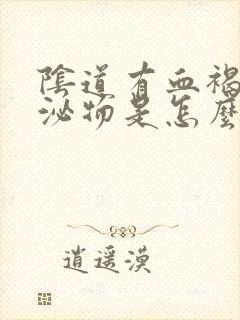 陰道有血褐
泌物是怎麼
逍遥漠